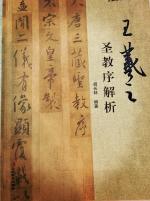 王羲之
圣教序解析
编著
大唐三藏聖教序
太宗文皇帝製
蓋聞二儀有像顯覆載